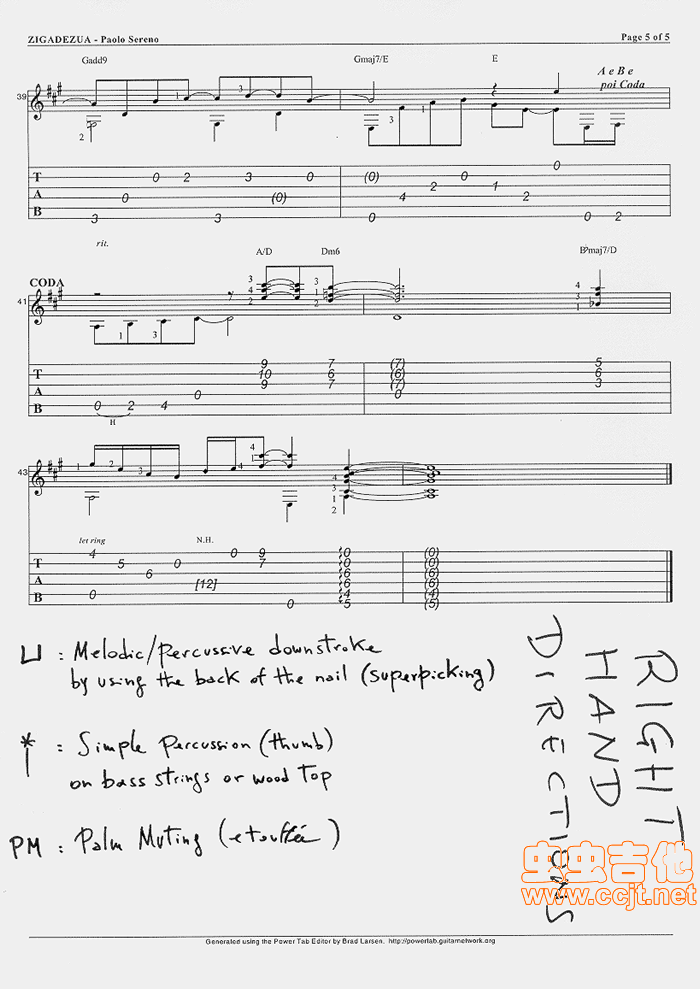 ZIGADEZUA - Paolo Sereno
Page 5 of 5
Gadd9 Gmaj7/E E
A e B e
poi Coda
39
2 1 3 3 1
T 0 2 3 0 (0) 2 0 1 0
A 0 (0) 4 2
B 3 3 0 0 2
rit.
A/D Dm6 B♭maj7/D
CODA
41
1 3
T 9 7 (7) 5
A 10 6 (6) 6
B 9 7 (7) 3
0 2 4 0 0
H
43
let ring N.H.
T 4 5 0 0 9 7 0 (0)
A 6 [12] 0 (0)
B 0 0 6 (6)
6 (6)
4 (4)
5 (5)
: Melodic/percussive downstroke
by using the back of the nail (superpicking)
* : Simple Percussion (thumb)
on bass strings or wood top
PM : Palm Muting (etouffée)
RIGHT
HAND
DIRECTIONS
虫虫吉他
www.ccjt.net
Generated using the Power Tab Editor by Brad Larsen. http://powertab.guitarnetwork.org